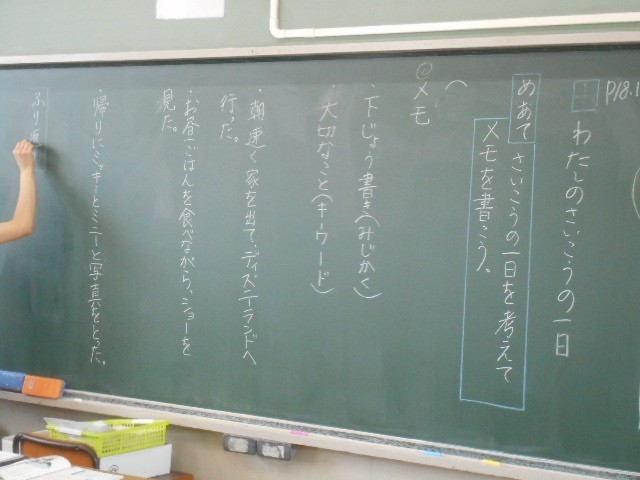 P18.1
わたしのさいこうの一日
めあて さいこうの一日を考えて
メモを書こう。
②メモ
・下じょう書き(みじかく)
・大切なこと(キーワード)
・朝速く家を出て、ディズニーランドへ
行った。
・お昼ごはんを食べながら、ショーを
見た。
・帰りにミッキーとミニーと写真をとった。
ふり返